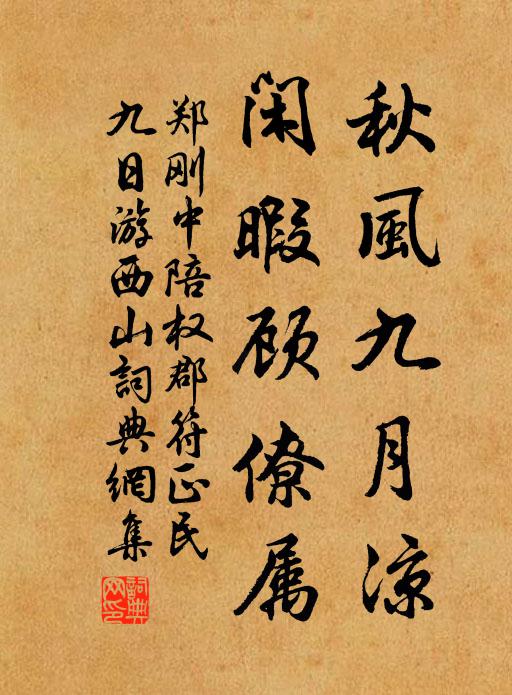 秋風九月凉
閑暇顾僚属
郑刚中陪权郡符正民
九日游西山詞典網集
詞典網印